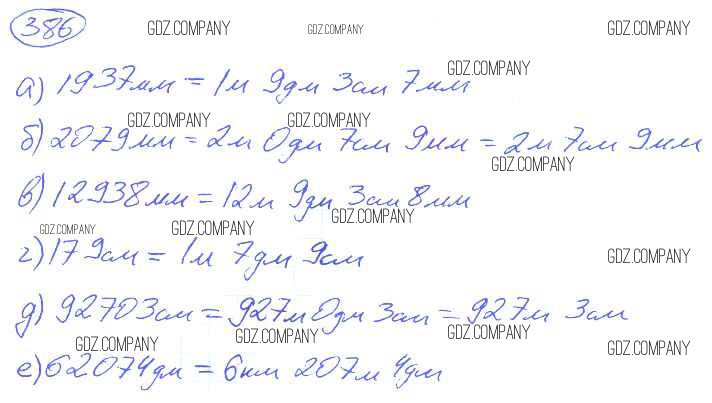 386 GDZ.COMPANY GDZ.COMPANY GDZ.COMPANY
GDZ.COMPANY
а) 1937мм = 1м 9дм 3см 7мм
GDZ.COMPANY GDZ.COMPANY
б) 2079мм = 2м 0дм 7см 9мм = 2м 7см 9мм
GDZ.COMPANY
в) 12938мм = 12м 9дм 3см 8мм
GDZ.COMPANY GDZ.COMPANY GDZ.COMPANY
г) 179см = 1м 7дм 9см GDZ.COMPANY
д) 92703см = 927м 0дм 3см = 927м 3см
GDZ.COMPANY GDZ.COMPANY GDZ.COMPANY GDZ.COMPANY
е) 62074дм = 6км 207м 4дм